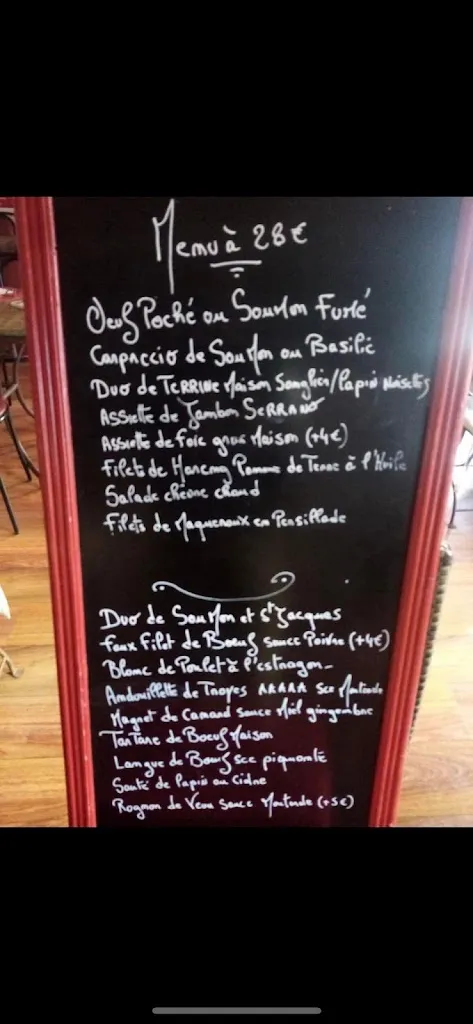 Menu à 28€
Oeuf Poché au Saumon Fumé
Carpaccio de Saumon au Basilic
Duo de TERRINE Maison Sanglier/Lapin Noisettes
Assiette de Jambon SERRANO
Assiette de foie gras Maison (+4€)
Filets de Hareng Pomme de Terre à l'Huile
Salade chèvre chaud
Filets de Maquereaux en Persillade
Duo de Saumon et St Jacques
Faux Filet de Boeuf sauce Poivre (+4€)
Blanc de Poulet à l'estragon
Andouillette de Troyes AAAAA sce Moutarde
Magret de Canard sauce Miel gingembre
Tartare de Boeuf Maison
Langue de Boeuf sce piquante
Sauté de lapin au Cidre
Rognon de Veau sauce Moutarde (+5€)